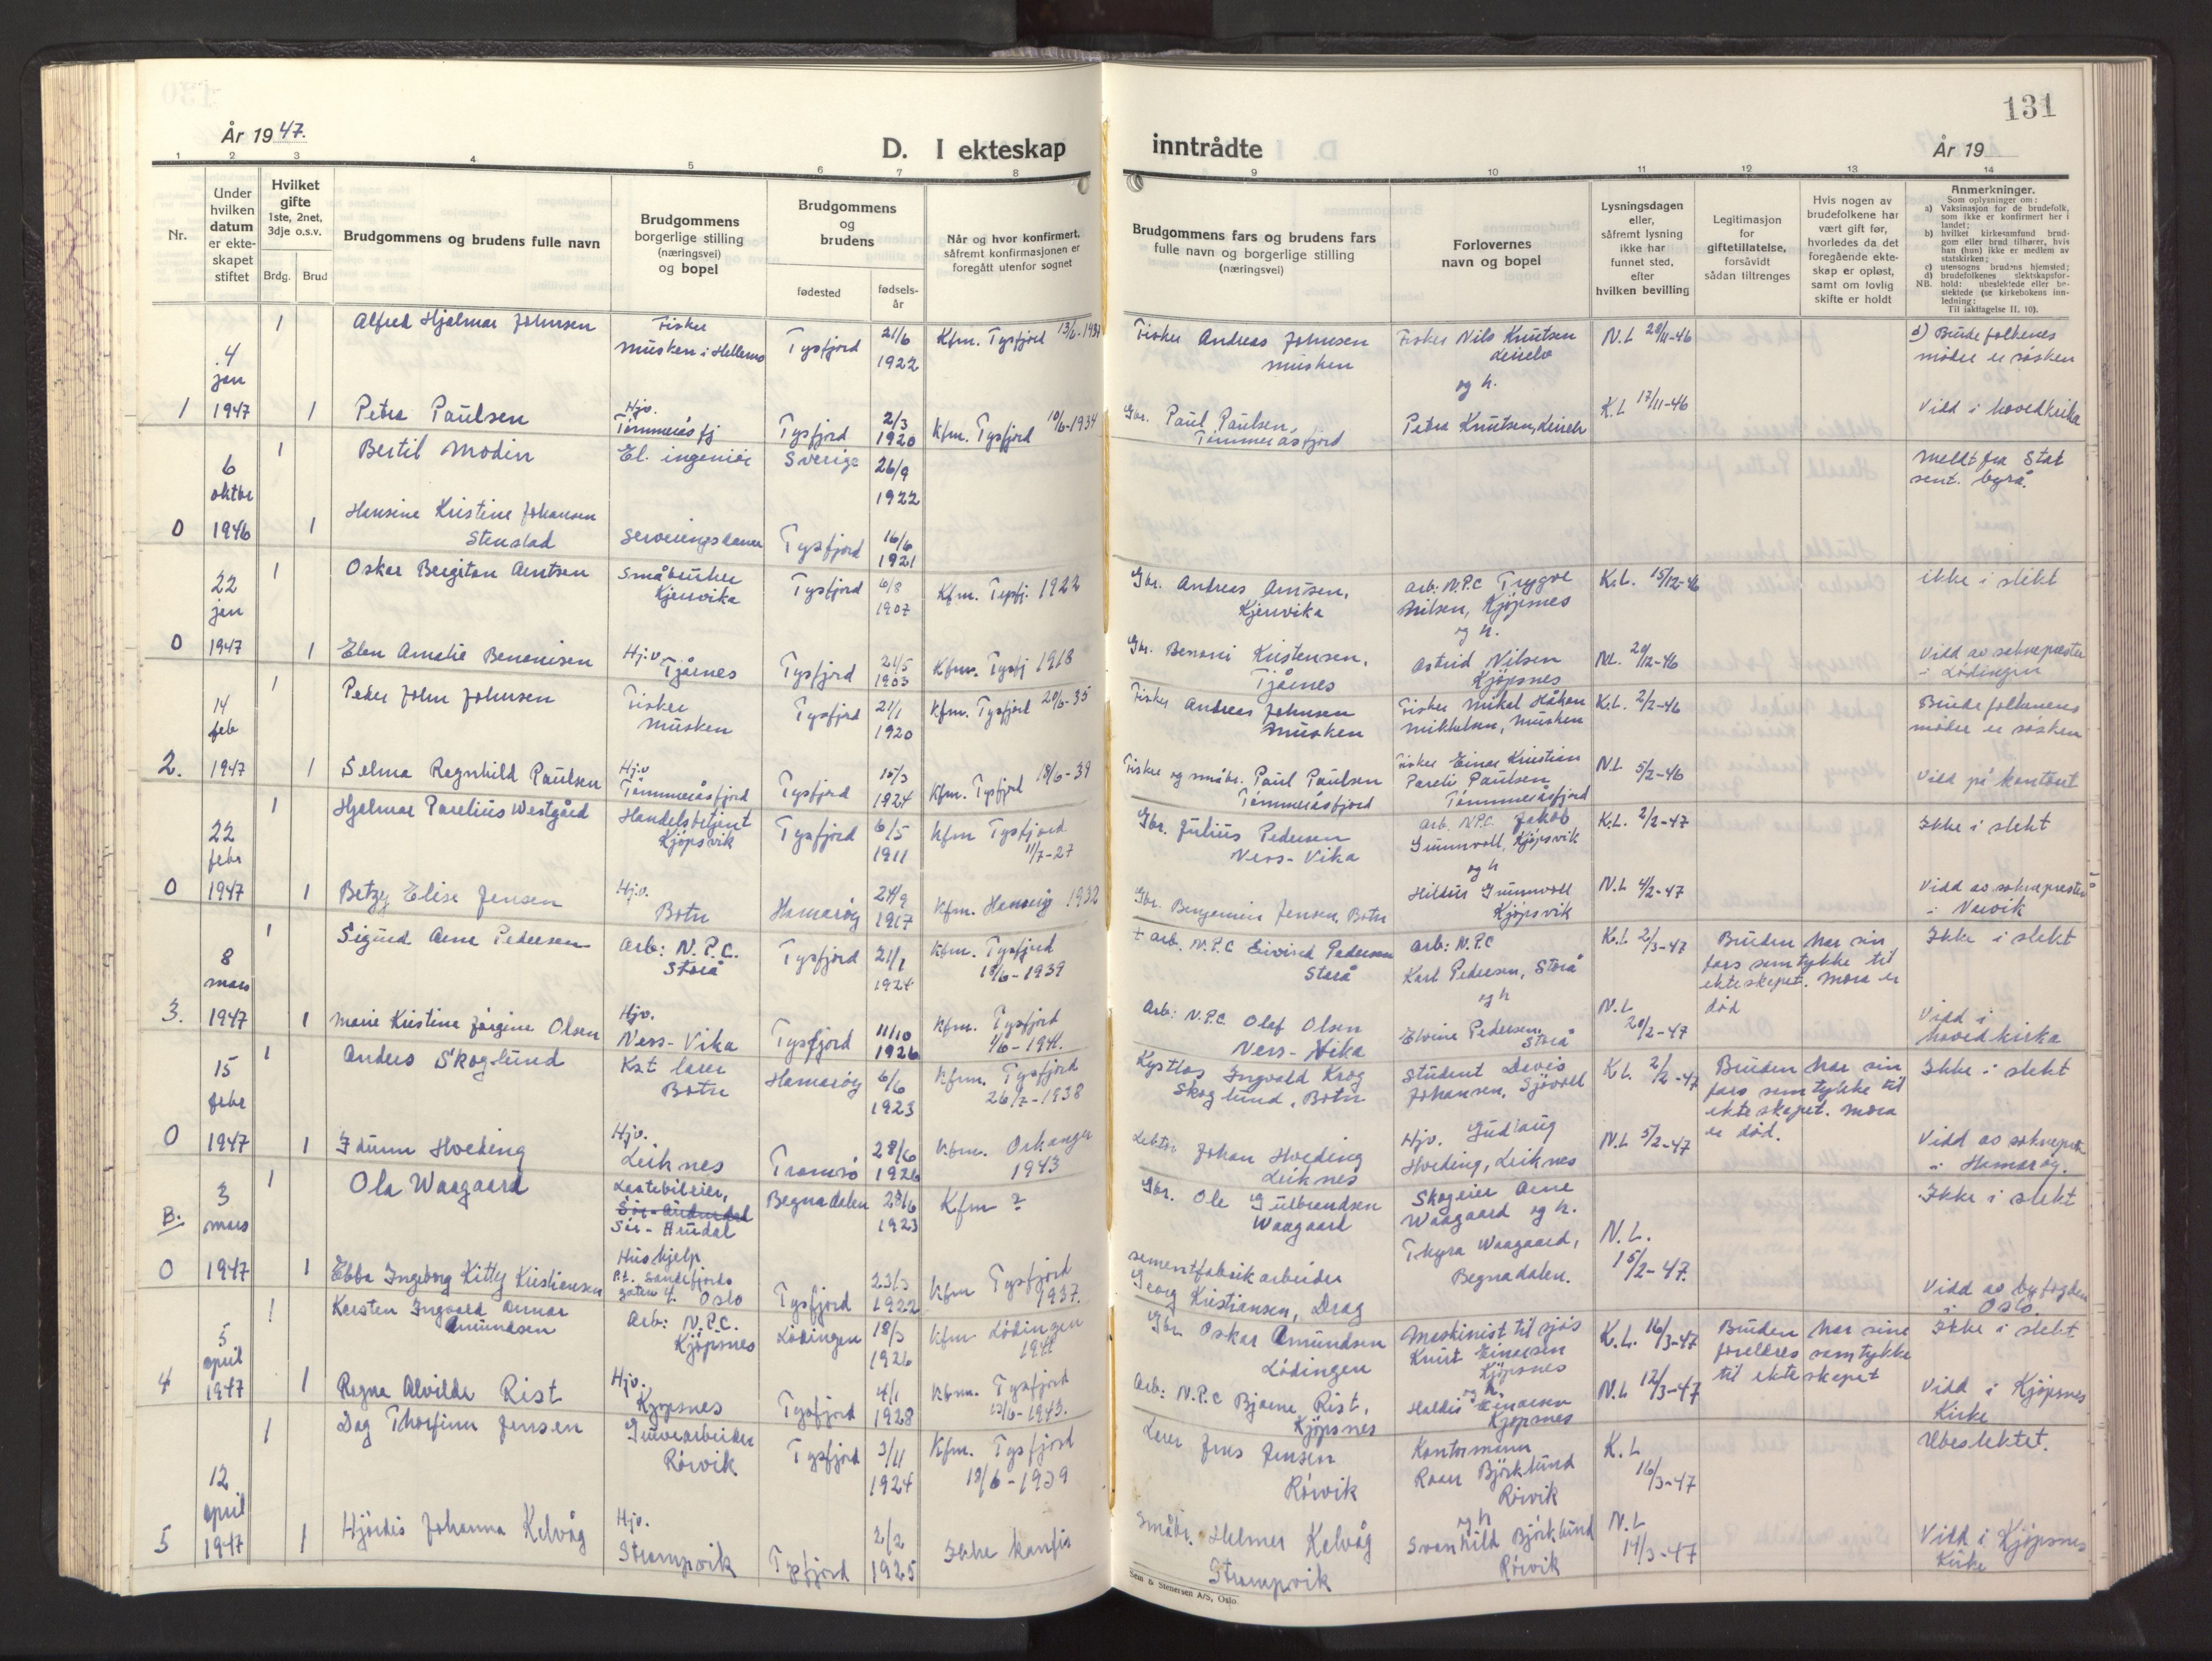 131
År 1947.
D. I ekteskap
inntrådte
År 19
1 2 3 4 5 6 7 8 9 10 11 12 13 14
Nr.
Under hvilken datum er ekteskapet stiftet
Hvilket gifte 1ste, 2net, 3dje o.s.v.
Brdg. Brud
Brudgommens og brudens fulle navn
Brudgommens borgerlige stilling (næringsvei) og bopel
Brudgommens og brudens
fødested
fødselsår
Når og hvor konfirmert, såfremt konfirmasjonen er foregått utenfor sognet
Brudgommens fars og brudens fars fulle navn og borgerlige stilling (næringsvei)
Forlovernes navn og bopel
Lysningsdagen eller, såfremt lysning ikke har funnet sted, efter hvilken bevilling
Legitimasjon for giftetillatelse, forsåvidt sådan tiltrenges
Hvis nogen av brudefolkene har vært gift før, hvorledes da det foregående ekteskap er opløst, samt om lovlig skifte er holdt
Anmerkninger.
Som oplysninger om:
a) Vaksinasjon for de brudefolk, som ikke er konfirmert her i landet;
b) hvilket kirkesamfund brudgom eller brud tilhører, hvis han (hun) ikke er medlem av statskirken;
c) utensogns brudens hjemsted;
d) brudefolkenes slektskapsforhold: ubeslektede eller beslektede (se kirkebokens innledning:
NB. Til iakttagelse II, 10).
1 4 jan 1947
1 Alfred Hjalmar Johnsen
Fisker Musken i Hellemo
Tysfjord 21/6 1922
Kfm. Tysfjord
Fisker Andreas Johnsen Musken
Fisker Nils Knutsen
og h.
N.L 20/11-46
d) Brudefolkenes mødre er søsken
1 Petra Paulsen
Hjv. Tømmeråsfj
Tysfjord 2/3 1920
Kfm. Tysfjord 10/6-1934
Gbr. Paul Paulsen, Tømmeråsfjord
Petra Knutsen,
K.L 17/11-46
Viet i hovedkirka
0 6 oktbr 1946
1 Bertil Modin
El. ingeniør
Sverige 26/9 1922
Meldt fra Stat sent. byrå.
1 Hansine Kristine Johansen Stenstad
Serveringsdame
Tysfjord 16/6 1921
0 22 jan 1947
1 Oskar Bergiton Arntsen
Småbruker Kjervika
Tysfjord 6/8 1907
Kfm. Tysfj. 1922
Gbr. Andreas Arntsen, Kjervika
Arb: N.P.C Trygve Nilsen, Kjøpsnes
og h.
K.L. 15/12-46
ikke i slekt
1 Elen Amalie Benonisen
Hj.v Tjårnes
Tysfjord 21/5 1903
Kfm. Tysfj 1918
Gbr. Benoni Kristensen, Tjårnes
Astrid Nilsen Kjøpsnes
NL. 20/12-46
Vidd av sokneprester i Lødingen
2. 14 feb 1947
1 Peder John Johnsen
Fisker Musken
Tysfjord 21/1 1920
Kfm. Tysfjord 20/6-35
Fisker Andreas Johnsen Musken
Fisker Mikal Håkon Mikkelsen, Musken
K.L. 2/2-46
Brudefolkenes mødre er søsken
1 Selma Ragnhild Paulsen
Hj.v Tømmeråsfjord
Tysfjord 15/3 1924
Kfm. Tysfjord 18/6-39
Fisker og småbr. Paul Paulsen Tømmeråsfjord
Fisker Einar Kristian Pareli Paulsen Tømmeråsfjord
NL 5/2-46
Vidd på kontoret
0 22 febr 1947
1 Hjalmar Parelius Westgård
Handelsbetjent Kjøpsvik
Tysfjord 6/5 1911
Kfm Tysfjord 11/7-27
Gbr. Julius Pedersen Ness-Vika
Arb. N.P.C. Jakob Grunnvoll, Kjøpsvik
og h
K.L. 2/2-47
Ikke i slekt
1 Betzy Elise Jensen
Hj.v. Botn
Hamarøy 24/9 1917
Kfm. Hamarøy 1932
Gbr. Benjamin Jensen, Botn
Hildur Grunnvoll Kjøpsvik
N.L 4/2-47
Vidd av sokneprester i Narvik
3. 8 mars 1947
1 Sigurd Arne Pedersen
Arb: N.P.C. Storå
Tysfjord 21/1 1924
Kfm. Tysfjord 18/6-1939
Arb. N.P.C Eivind Pedersen Storå
Arb: N.P.C Karl Pedersen, Storå
og h
K.L 2/3-47
Bruden har sin fars samtykke til ekteskapet. Mora er død
Ikke i slekt
1 Marie Kristine Jørgine Olsen
Hjv. Ness-Vika
Tysfjord 11/10 1926
Kfm. Tysfjord 1/6-1941.
Arb: N.P.C. Olaf Olsen Ness-Vika
Elvine Pedersen, Storå
N.L 20/2-47
Vidd i hovedkirka
0 15 febr 1947
1 Anders Skoglund
Kst lærer Botn
Hamarøy 6/6 1923
Kfm. Tysfjord 26/7-1938
Kystlos Ingvald Krog Skoglund, Botn
Student Davis Johansen, Sjøvoll
K.L. 2/2-47
Bruden har sin fars samtykke til ekteskapet. Mora er død.
Ikke i slekt
1 Idunn Hveding
Hjv. Leiknes
Tromsø 28/6 1926
Kfm. Orkanger 1943
Lektor Johan Hveding Leiknes
Hjv. Gudlaug Hveding, Leiknes
N.L 5/2-47
Vidd av soknepr. i Hamarøy.
B. 0 3 mars 1947
1 Ola Waagaard
Lastebileier, Sør-Aurdal
Begnadalen 23/6 1923
Kfm ?
Gbr. Ole Gulbrandsen Waagaard
Skogeier Arne Waagaard og h.
Ikke i slekt
1 Ebba Ingeborg Kitty Kristiansen
Hushjelp p.t. Sandefjords gaten 4. Oslo
Tysfjord 23/3 1922
Kfm Tysfjord 1937.
Sementfabrikarbeider Georg Kristiansen, Drag
Thyra Waagaard, Begnadalen.
N.L. 15/2-47.
Vidd av byfogden i Oslo.
4 5 april 1947
1 Karsten Ingvald Annar Amundsen
Arb: N.P.C. Kjøpsnes
Lødingen 18/3 1926
Kfm Lødingen 1941
Gbr Oskar Amundsen Lødingen
Maskinist til sjøs Knut Einarsen Kjøpsnes
og h.
K.L. 16/3-47
Bruden har sine foreldres samtykke til ekteskapet
Ikke i slekt
1 Ragna Alvilde Rist
Hjv. Kjøpsnes
Tysfjord 4/1 1928
Kfm. Tysfjord 13/6-1943.
Arb: N.P.C Bjarne Rist, Kjøpsnes
Haldis Einarsen Kjøpsnes
N.L 12/3-47
Vidd i Kjøpsnes Kirke
5 12 april 1947
1 Dag Thorfinn Jensen
Gruvearbeider Rørvik
Tysfjord 3/11 1924
Kfm. Tysfjord 18/6-1939
Lærer Jens Jensen Rørvik
Kontormann Roar Björklund Rørvik
og h
K.L 16/3-47
Ubeslektet.
1 Hjørdis Johanna Kelvåg
Hjv. Strømpvik
Tysfjord 2/2 1925
Ikke konfir
Småbr. Helmer Kelvåg Strømpvik
Svanhild Björklund Rørvik
N.L 14/3-47
Vidd i Kjøpsnes Kirke
Sem & Stenersen A/S, Oslo.